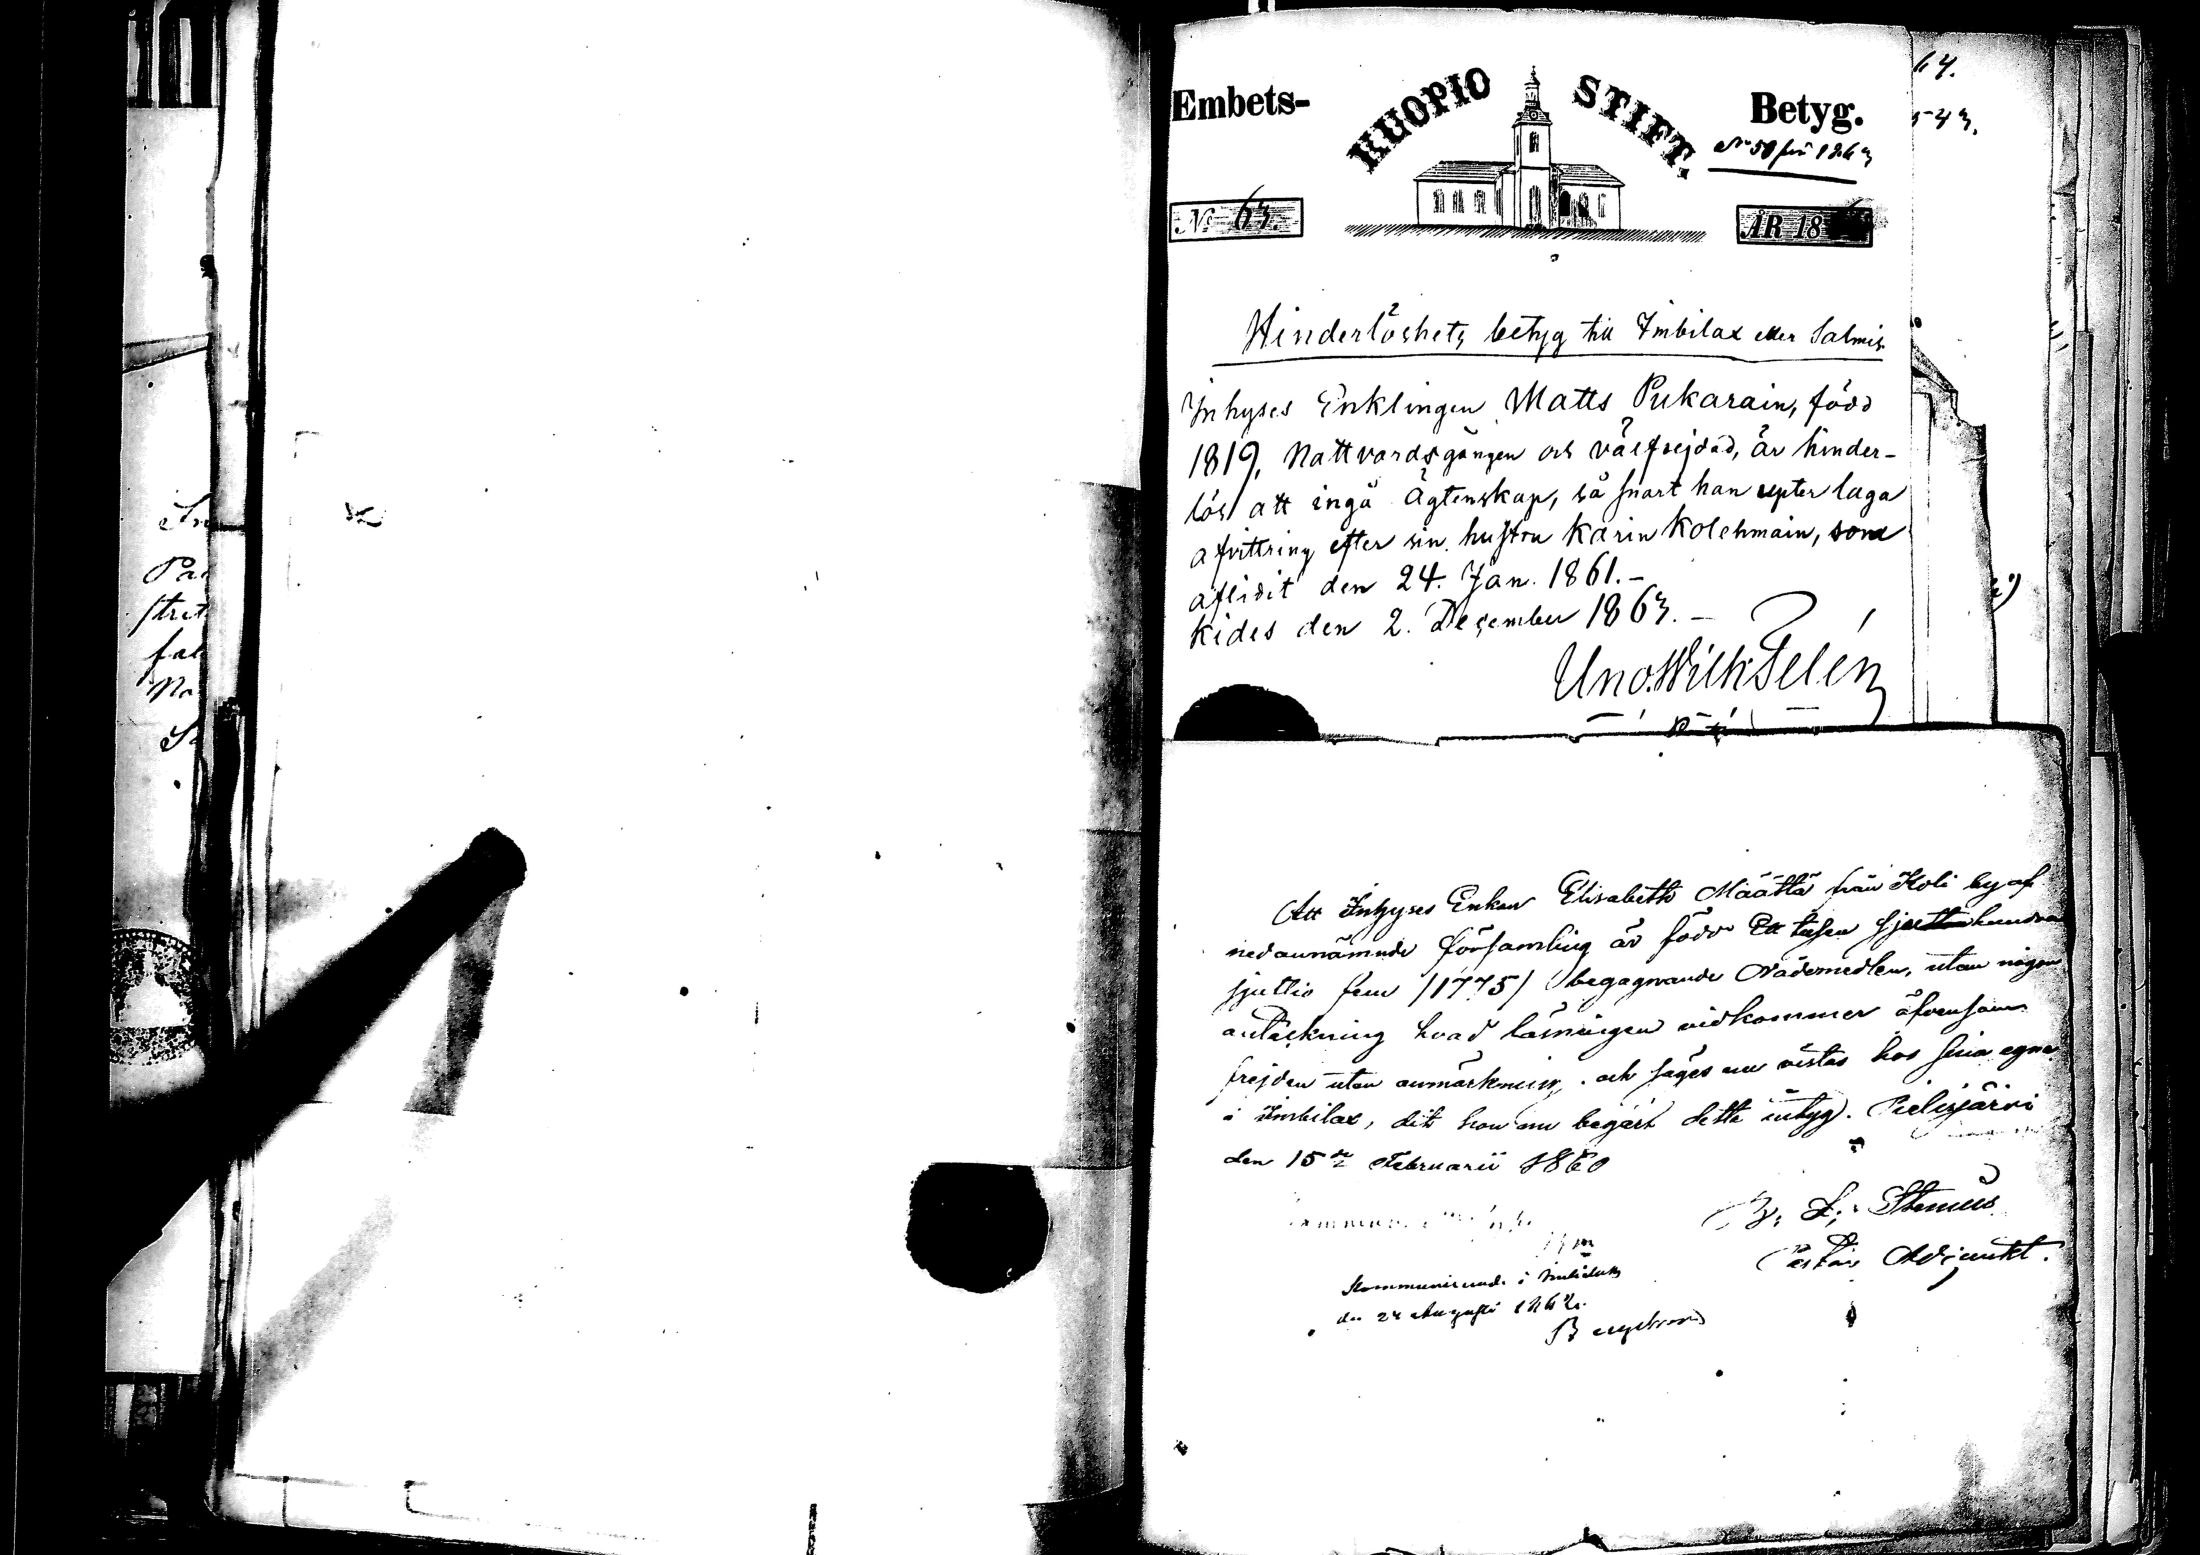 Embets-
KUOPIO STIFT.
Betyg.
No 50 för 1863
No 63.
ÅR 18
Hinderlöshets betyg till Imbilax eller Salmis
Inhyses Enklingen Matts Pukarain, född
1819, Nattvardsgången och välfrejdad, är hinder-
lös att ingå Ägtenskap, så snart han upter laga
afvittring efter sin hustru Karin Kolehmain, som
aflidit den 24. Jan. 1861.-
Kides den 2. December 1863.-
Uno Wilh Telén
Att Inhyses Enkan Elisabeth Määttä från Koli by af
nedannämnde församling är född Ett tusen sjuttonhundra
sjuttio fem /1775/ begagnande Nådemedlen, utan någon
anteckning hvad läsningen vidkommer äfvensom
frejden utan anmärkning, och säges nu vistas hos sina egna
i Imbilax, dit hon nu begärt detta intyg. Pielisjärvi
den 15de Februarii 1860
Stenius
Adjunkt.
Kommunicerade i Imbilax
den 24 Augusti 1862.
Bergstrand
64.
543.
Pa
stret
fal